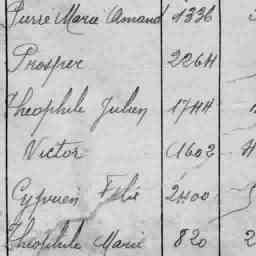 Pierre Marie Amand 1336
Prosper 2264
Théophile Julien 1744
Victor 1602
Cyprien Félix 2400
Théophile Marie 820 2